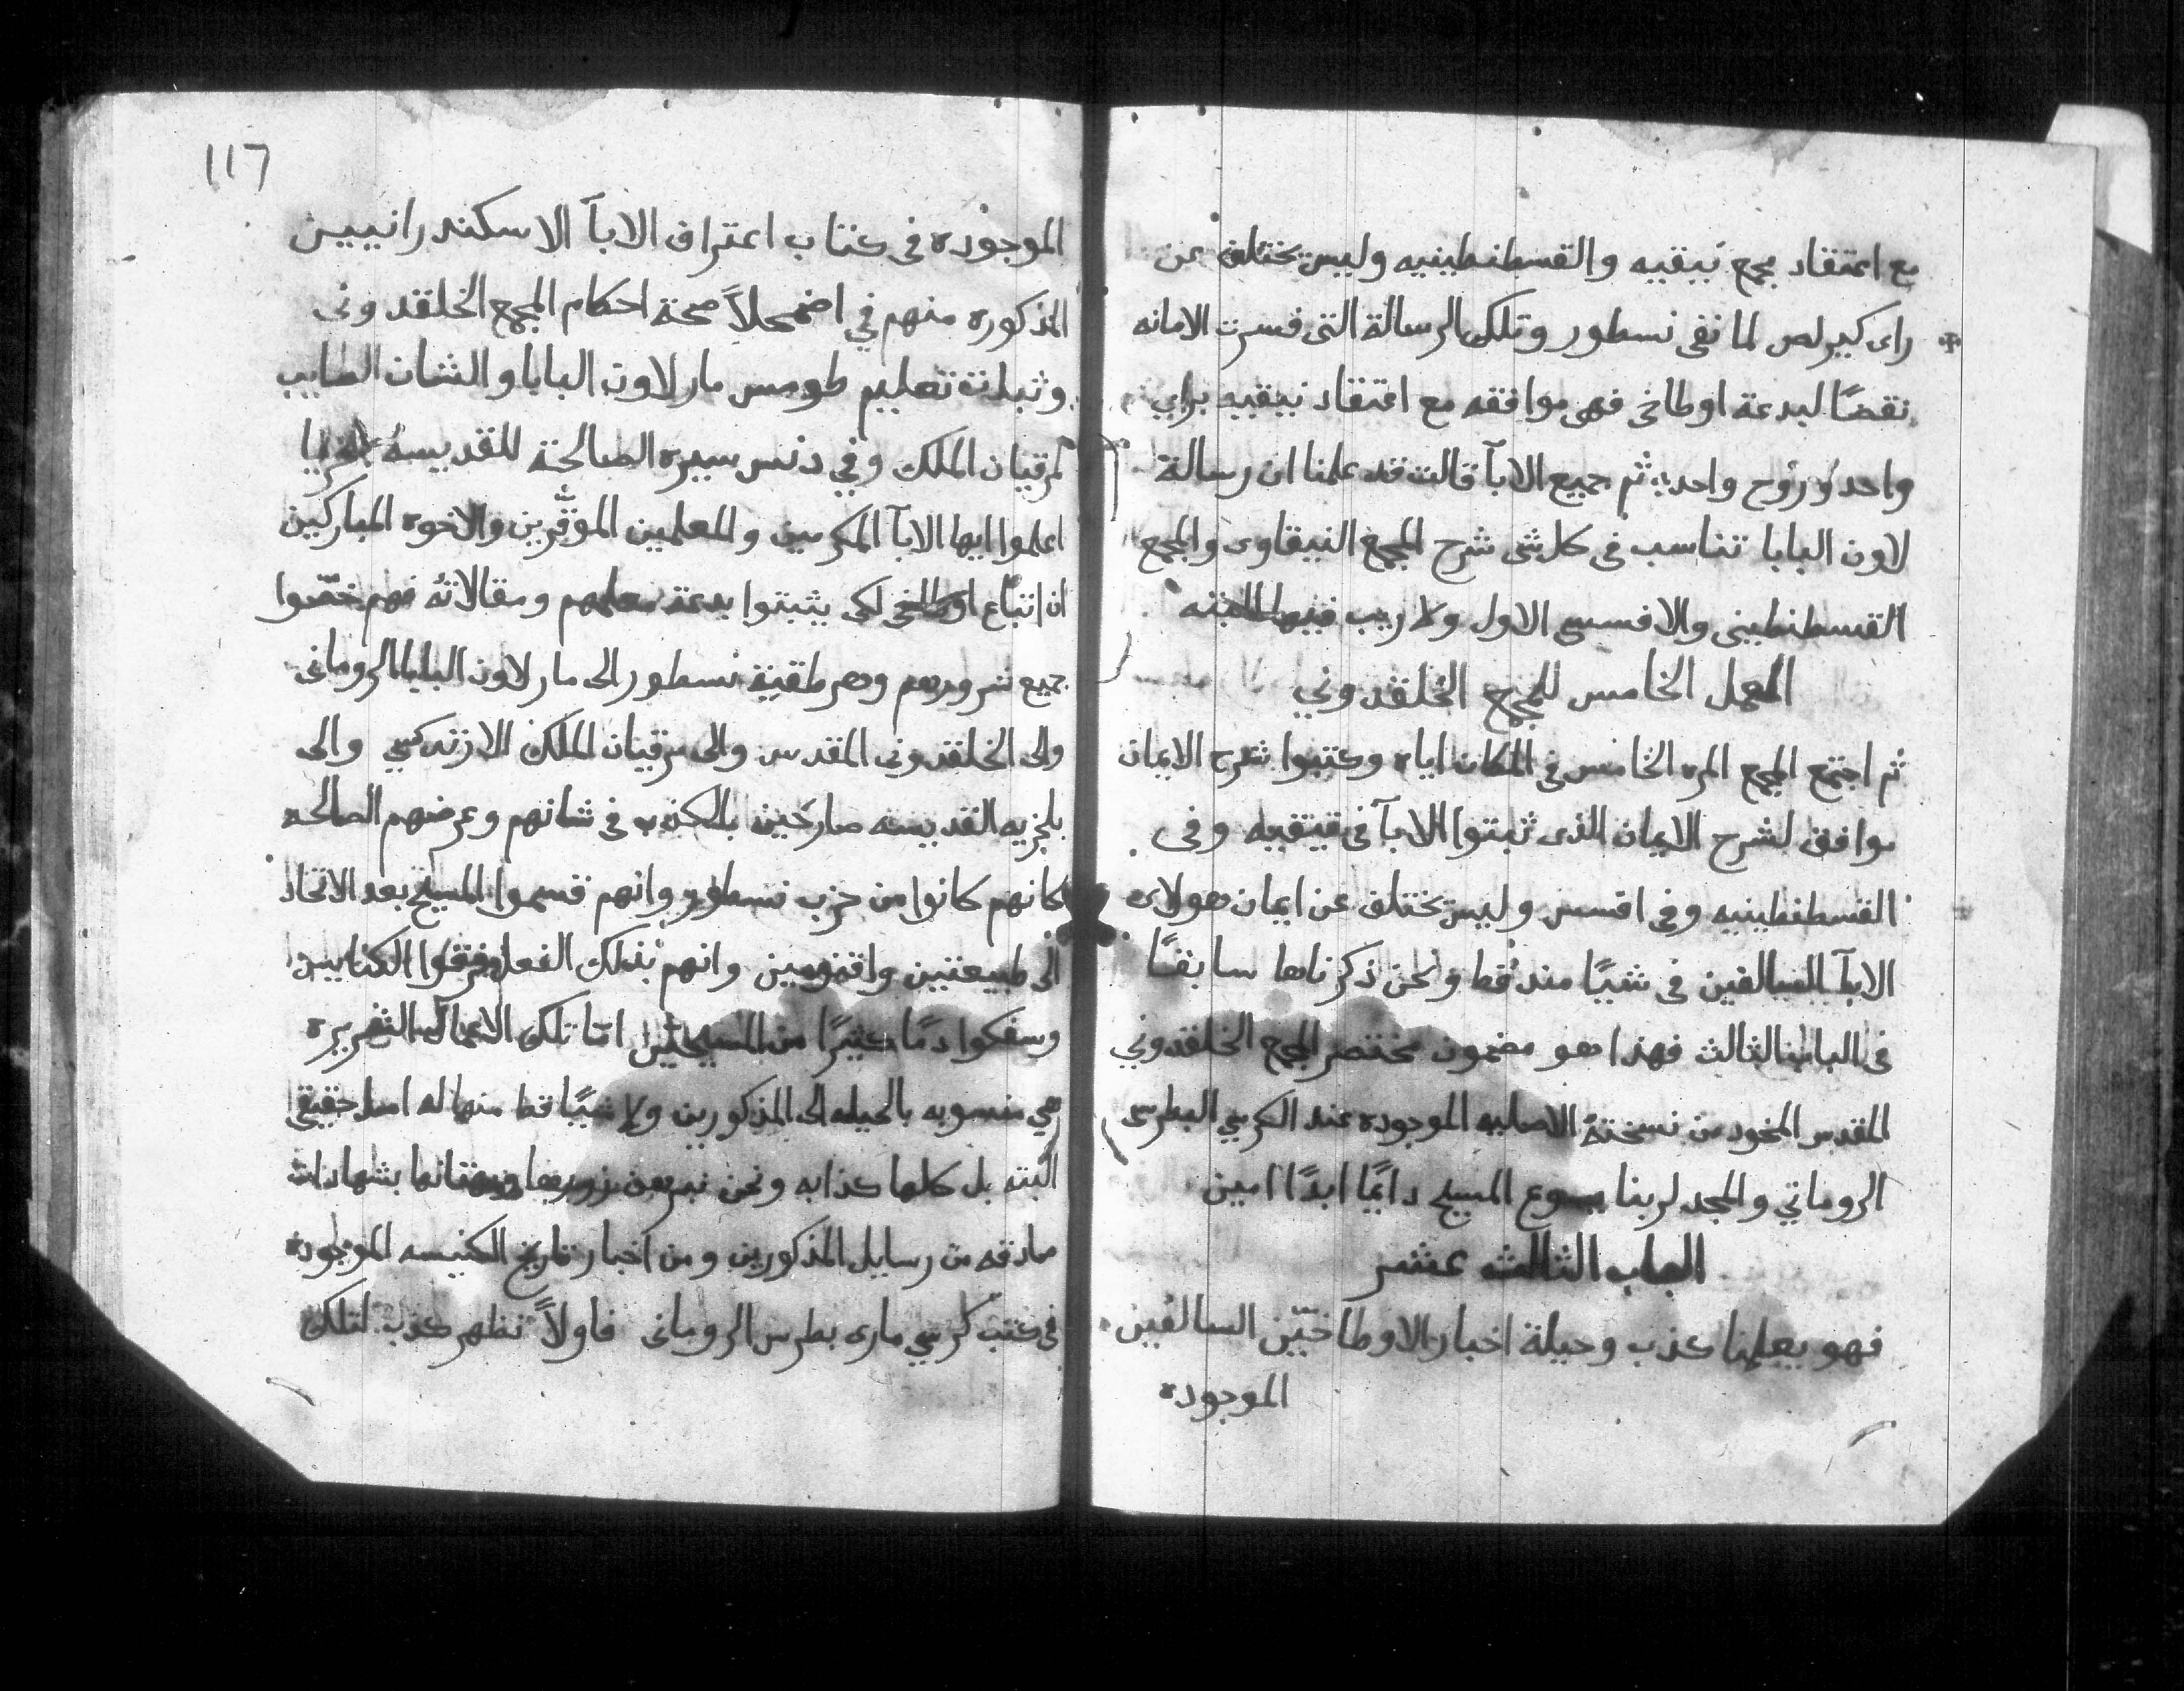 مع اعتقاد مجمع نيقيه والقسطنطينيه وليس يختلف عن
راى كيرلص لما نفى نسطور وتلك الرسالة التى فسرت الامانه
نقضًا لبدعة اوطاخى فهى موافقه مع اعتقاد نيقيه براي
واحد وروح واحد ثم جميع الابآ قالت قد علمنا ان رسالة
لاون البابا تناسب فى كل شى شرح المجمع النيقاوى والمجمع
القسطنطينى والافسسى الاول ولا ريب فيها البته
العمل الخامس للمجمع الخلقدوني
ثم اجتمع المجمع المره الخامس في المكان اياه وكتبوا شرح الايمان
موافق لشرح الايمان الذى ثبتوا الابآ فى نيقيه وفى
القسطنطينيه وفى افسس وليس يختلف عن ايمان هولاى
الابآ السالفين فى شيًا منه قط ونحن ذكرناها سابقًا
فى الباب الثالث فهذا هو مضمون مختصر المجمع الخلقدوني
المقدس الماخود من نسخته الاصليه الموجوده عند الكرسي البطرسى
الروماني والمجد لربنا يسوع المسيح دايمًا ابدًا امين
الباب الثالث عشر
فهو يعلمنا كذب وحيلة اخبار الاوطاخيّين السالفين
الموجوده
117
الموجوده فى كتاب اعتراف الابآ الاسكندرانيين
المذكوره منهم في اضمحلاً صحة احكام المجمع الخلقدونى
وثبات تعليم طومس مار لاون البابا والشان الصايب
لمرقيان الملك وفي دنس سيره الصالحة للقديسه
اعلموا ايها الابآ المكرمين والمعلمين الموقّرين والاخوه المباركين
ان اتباع اوطاخى لكى يثبتوا بدعة معلمهم ومقالاته فهم
جميع شرورهم وهرطقية نسطور الى مار لاون البابا الرومانى
والى الخلقدونى المقدس والى مرقيان الملك الارتدكسي والى
بلخريه القديسه صارخين بالكذب فى شانهم وعرضهم الصالحه
كانهم كانوا من حزب نسطور وانهم قسموا المسيح بعد الاتحاد
الى طبيعتين واقنومين وانهم بذلك الفعل الكنايس
وسفكوا دمًا كثيرًا من المسيحيّين امّا تلك الاعمال الشريره
هي منسوبه بالحيله الى المذكورين ولا شيًا قط منها له اصل حقيقى
البته بل كلها كذابه ونحن نبرهن زورها وبهتانها بشهادات
صادقه من رسايل المذكورين ومن اخبار تاريخ الكنيسه الموجوده
فى كتب كرسي مارى بطرس الرومانى فاولاً نظهر كذب لتلك